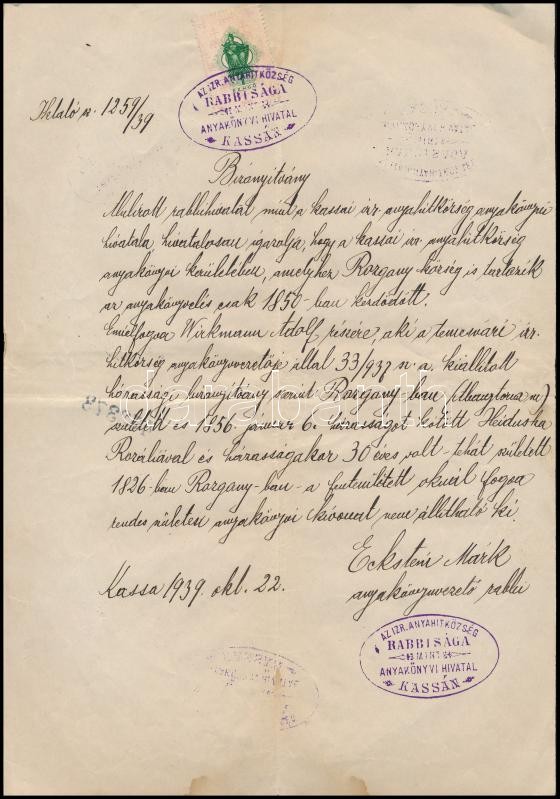 Iktató sz. 1259/39
AZ IZR. ANYAHITKÖZSÉG
RABBISÁGA
MINT
ANYAKÖNYVI HIVATAL
KASSÁN
Bizonyítvány
Alulirott rabbihivatal mint a kassai izr. anyahitközség anyakönyvi
hivatala hivatalosan igazolja, hogy a kassai izr. anyahitközség
anyakönyvi kerületében, amelyhez Rozgony község is tartozik
az anyakönyvelés csak 1850-ban kezdődött.
Ennélfogva Wirkmann Adolf részére, aki a temesvári izr.
hitközség anyakönyvvezetője által 33/937 sz. a. kiállított
házassági bizonyítvány szerint Rozgony-ban
született és 1856 január 6. házasságot kötött
Rozáliával és házasságakor 30 éves volt - tehát született
1826-ban Rozgony-ban - a fentemlített okuál fogva
rendes születési anyakönyvi kivonat nem állítható ki.
Kassa 1939. okt. 22.
Eckstein Márk
anyakönyvvezető rabbi
AZ IZR. ANYAHITKÖZSÉG
RABBISÁGA
MINT
ANYAKÖNYVI HIVATAL
KASSÁN
darabanth